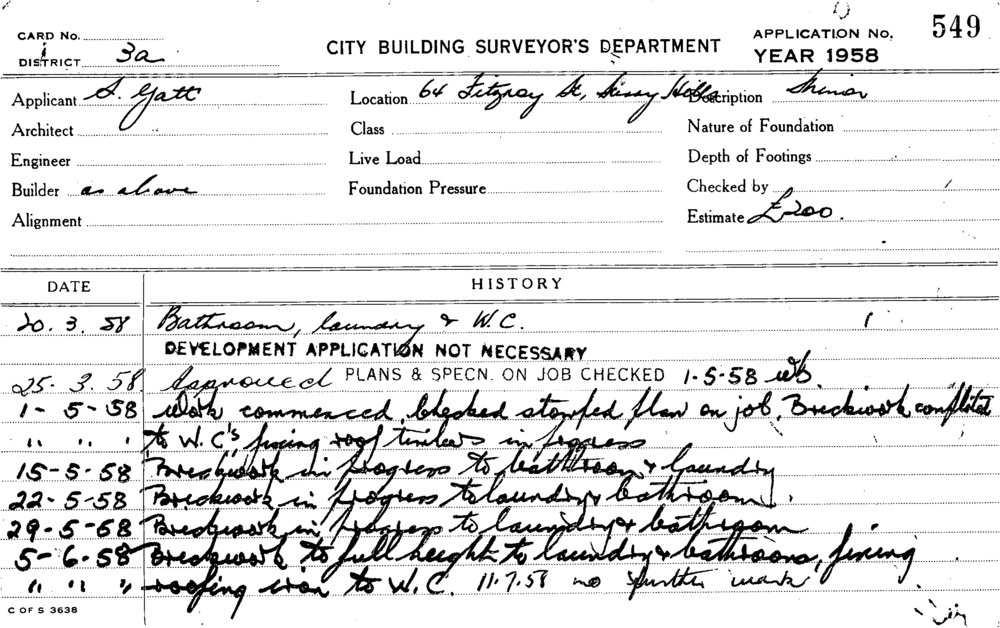 549
CARD No.
DISTRICT 3a
CITY BUILDING SURVEYOR'S DEPARTMENT
APPLICATION No.
YEAR 1958
Applicant S. Gatt
Location 64 Fitzroy St, Surry Hills
Description Minor
Architect
Class
Nature of Foundation
Engineer
Live Load
Depth of Footings
Builder as above
Foundation Pressure
Checked by
Alignment
Estimate £200.
DATE HISTORY
20. 3. 58 Bathroom, laundry & W.C.
DEVELOPMENT APPLICATION NOT NECESSARY
25. 3. 58. Approved PLANS & SPECN. ON JOB CHECKED 1-5-58
1- 5-58 Work commenced, checked stamped plan on job, Brickwork completed
" " " to W.C's fixing roof timbers in progress
15-5-58 Brickwork in progress to bathroom & laundry
22-5-58 Brickwork in progress to laundry & bathroom.
29-5-58 Brickwork in progress to laundry & bathroom
5-6-58 Brickwork to full height to laundry & bathrooms, fixing
" " " roofing iron to W.C. 11.7.58 no further work
C OF S 3638